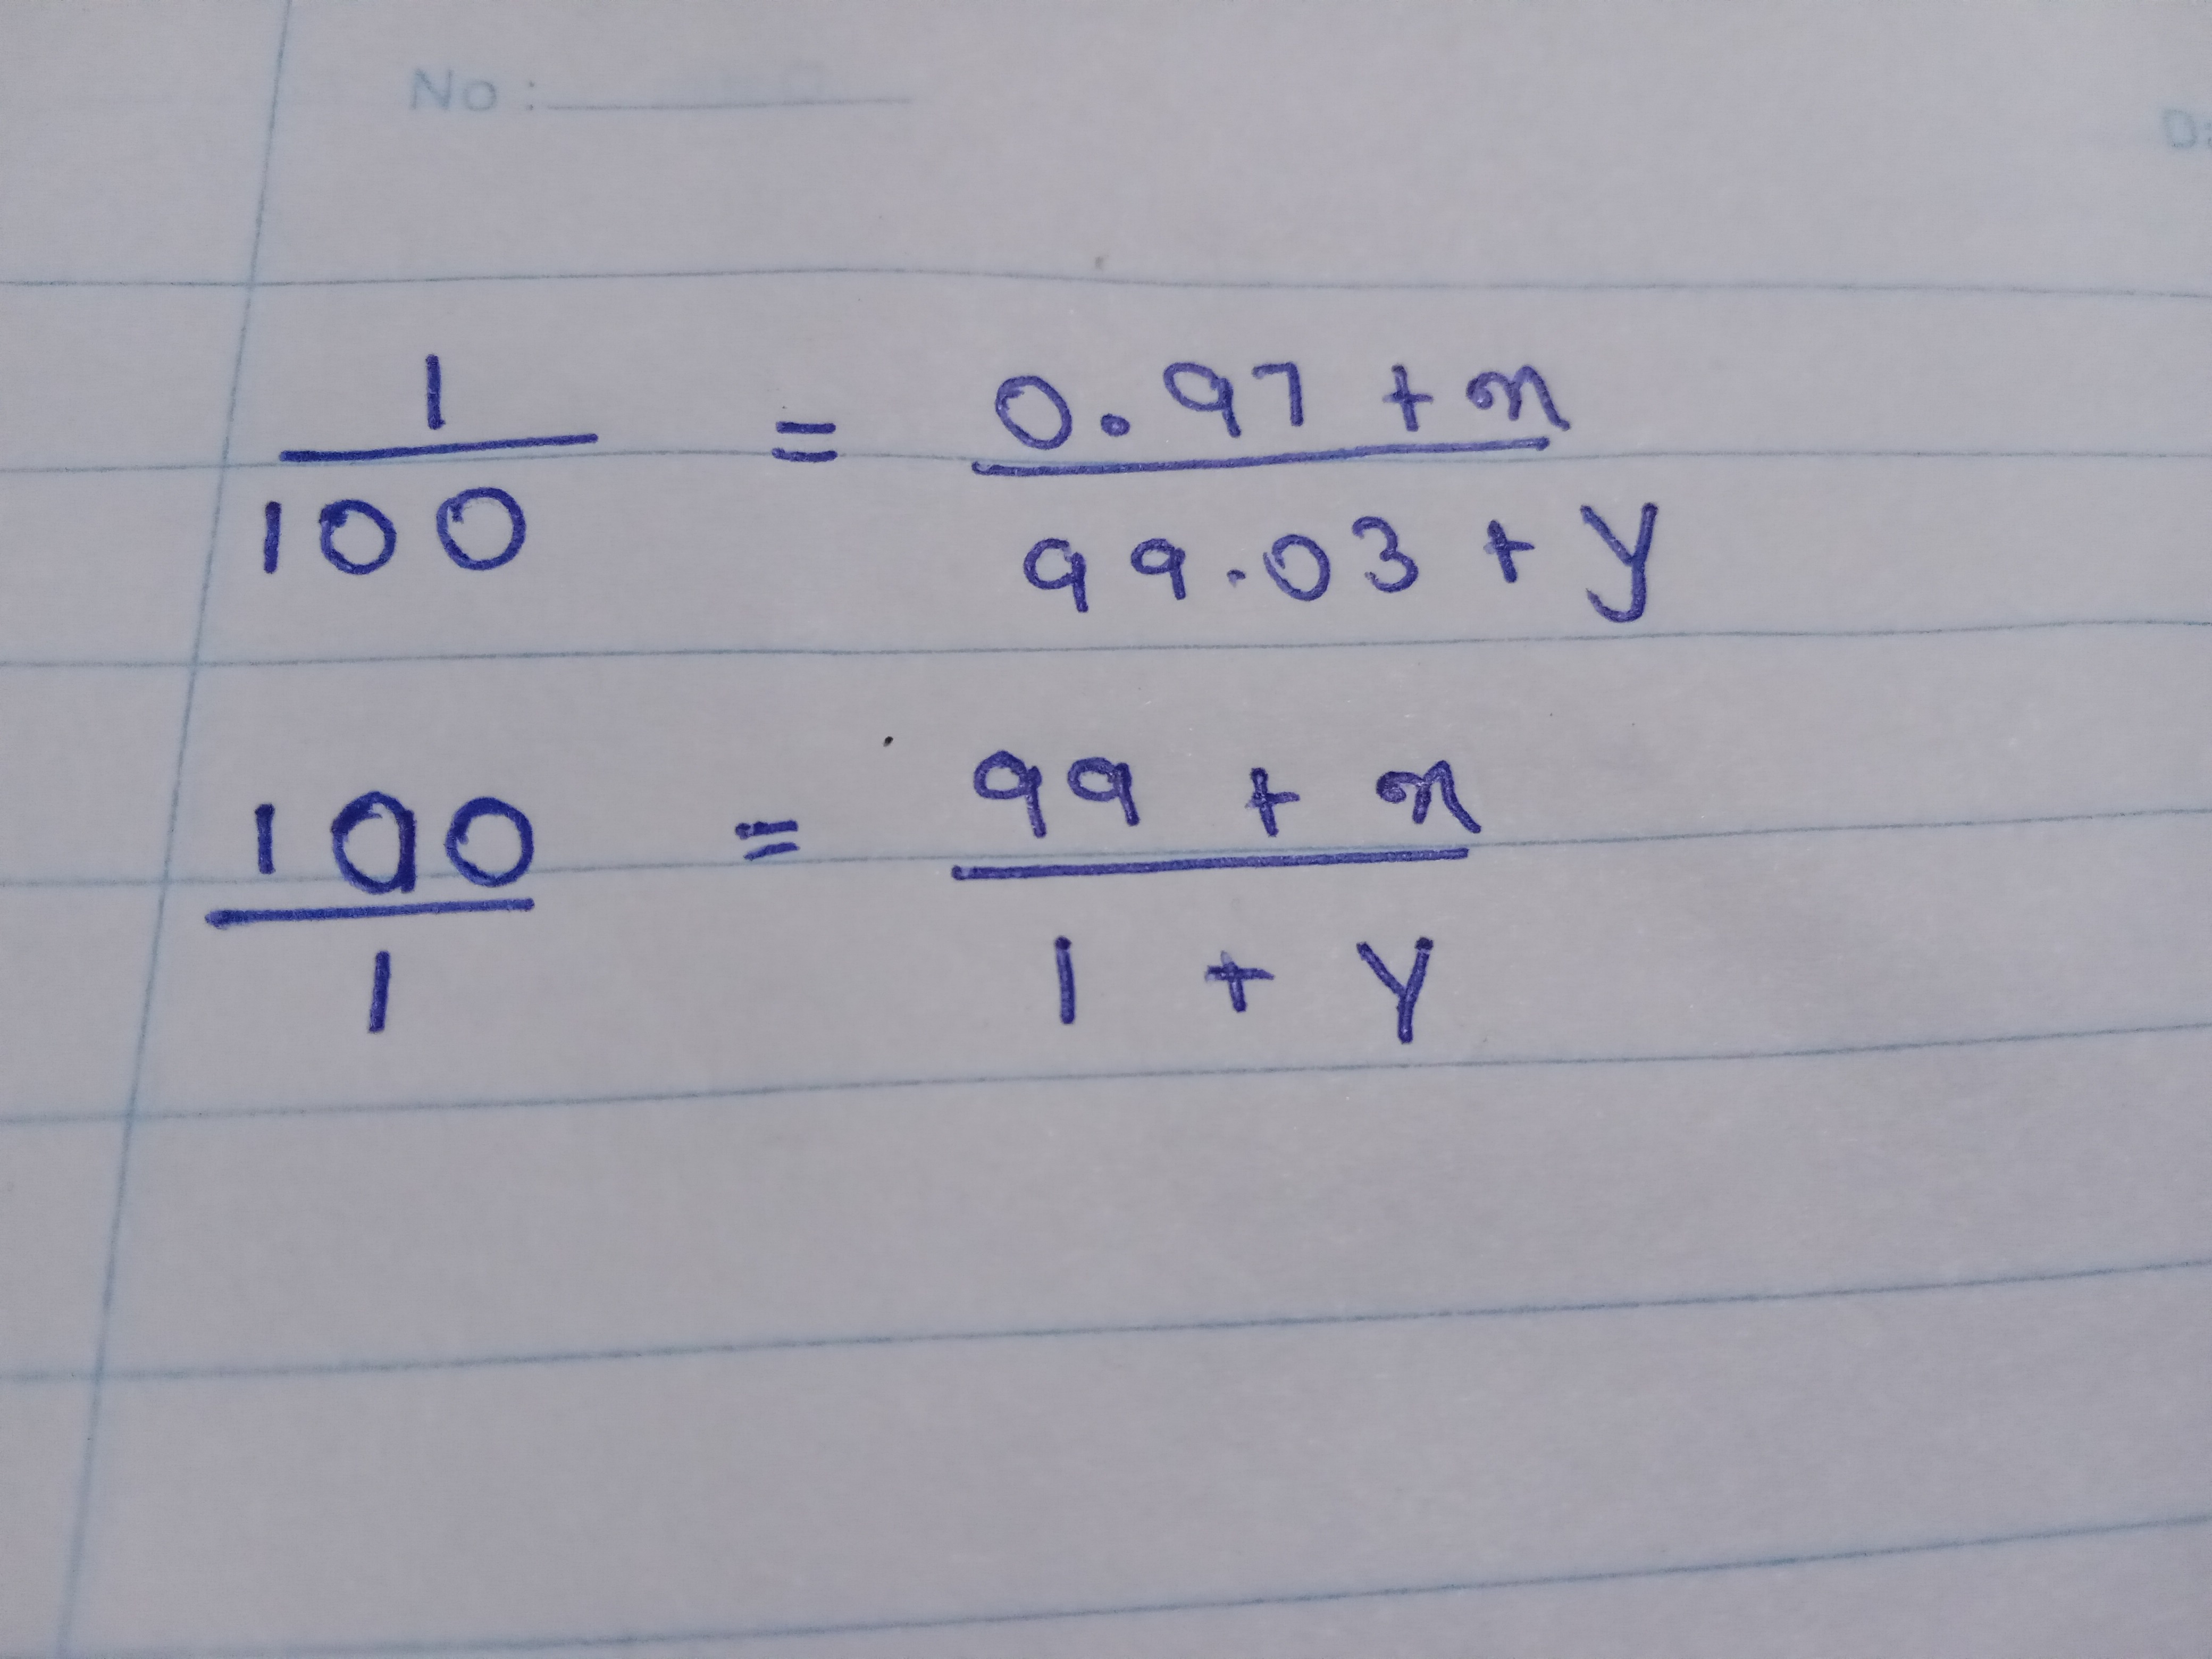 No :
1/100 = (0.97 + x)/(99.03 + y)
100/1 = (99 + x)/(1 + y)